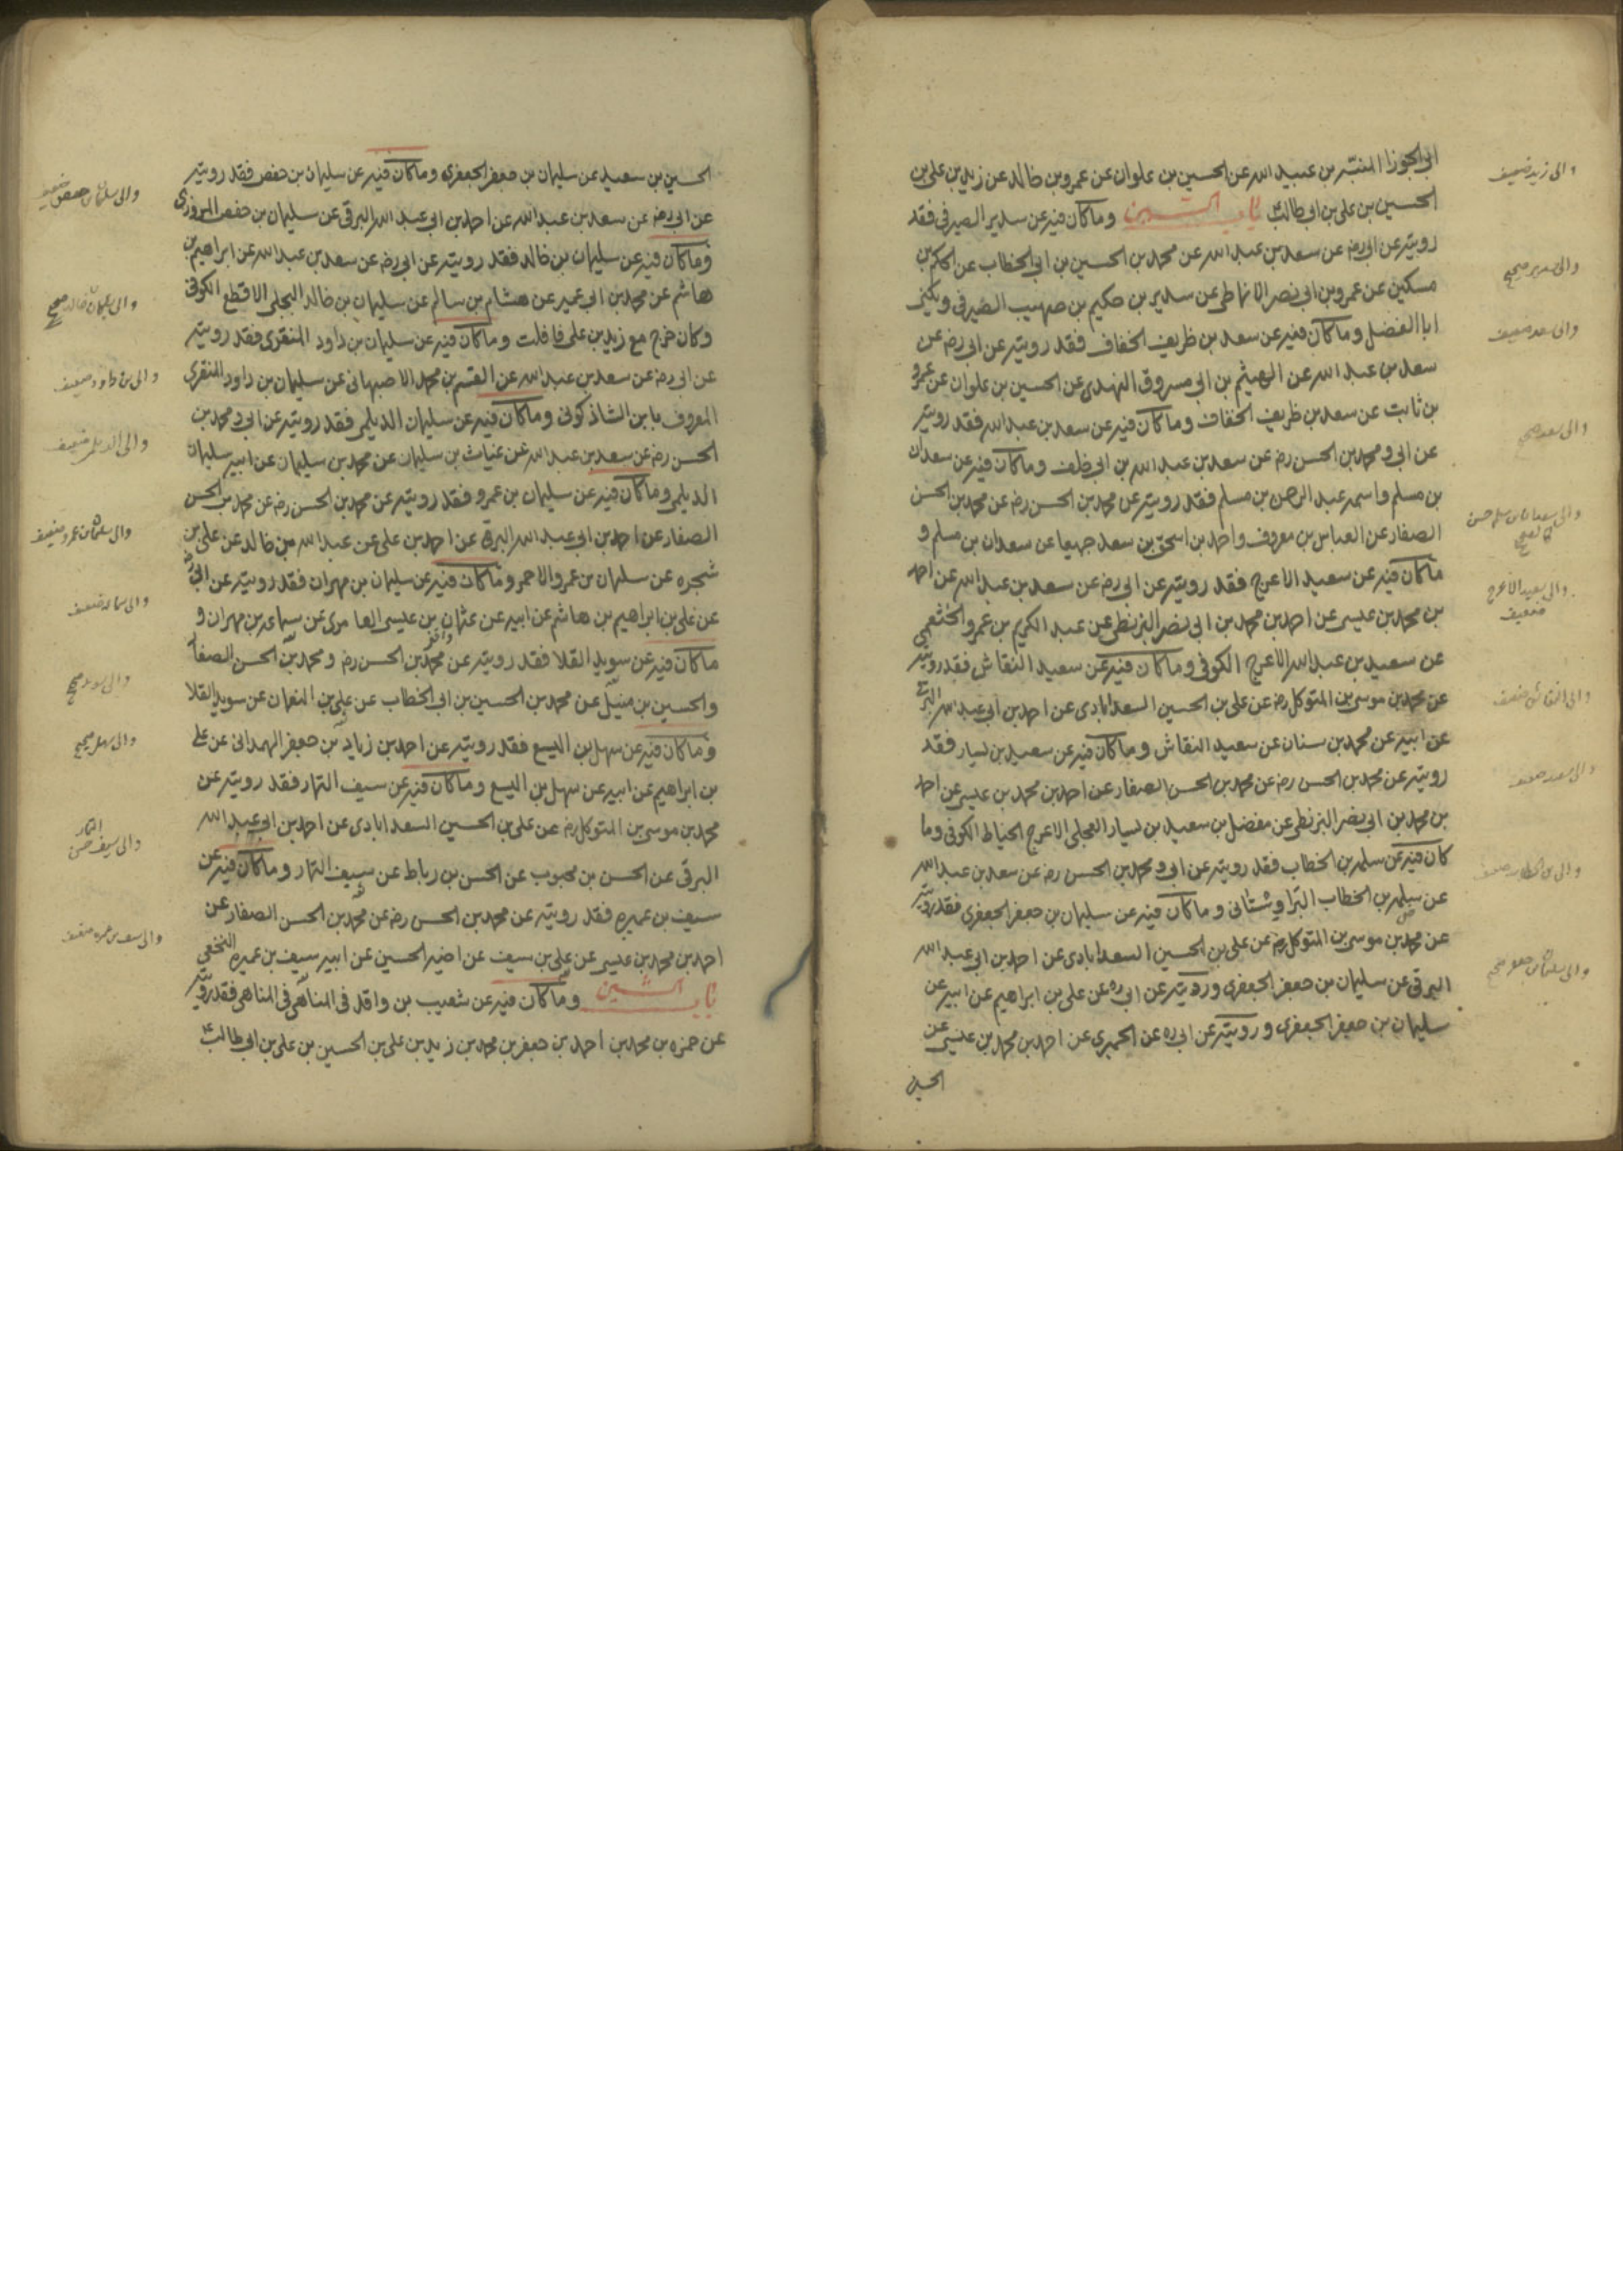 ابى الجوزا المنبّه بن عبيد الله عن الحسين بن علوان عن عمرو بن خالد عن زيد بن على بن
الحسين بن على بن ابى طالب ع باب السين وما كان فيه عن سدير الصيرفى فقد
رويته عن ابى رضه عن سعد بن عبد الله عن محمد بن الحسين بن ابى الخطاب عن الحكم بن
مسكين عن عمرو بن ابى نصر الانماطى عن سدير بن حكيم بن صهيب الصيرفى ويكنى
ابا الفضل وما كان فيه عن سعد بن ظريف الخفاف فقد رويته عن ابى رضه عن
سعد بن عبد الله عن الهيثم بن ابى مسروق النهدى عن الحسين بن علوان عن عمرو
بن ثابت عن سعد بن ظريف الخفاف وما كان فيه عن سعد بن عبد الله فقد رويته
عن ابى ومحمد بن الحسن رضه عن سعد بن عبد الله بن ابى خلف وما كان فيه عن سعدان
بن مسلم واسمه عبد الرحمن بن مسلم فقد رويته عن محمد بن الحسن رضه عن محمد بن الحسن
الصفار عن العباس بن معروف واحمد بن اسحق بن سعد جميعا عن سعدان بن مسلم و
ما كان فيه عن سعيد الاعرج فقد رويته عن ابى رضه عن سعد بن عبد الله عن احمد
بن محمد بن عيسى عن احمد بن محمد بن ابى نصر البزنطى عن عبد الكريم بن عمرو الخثعمى
عن سعيد بن عبد الله الاعرج الكوفى وما كان فيه عن سعيد النقاش فقد رويته
عن محمد بن موسى بن المتوكل رضه عن على بن الحسين السعدابادى عن احمد بن ابى عبد الله البرقى
عن ابيه عن محمد بن سنان عن سعيد النقاش وما كان فيه عن سعيد بن يسار فقد
رويته عن محمد بن الحسن رضه عن محمد بن الحسن الصفار عن احمد بن محمد بن عيسى عن احمد
بن محمد بن ابى نصر البزنطى عن مفضل بن سعيد بن يسار العجلى الاعرج الحناط الكوفى وما
كان فيه عن سلمه بن الخطاب فقد رويته عن ابى ومحمد بن الحسن رضه عن سعد بن عبد الله
عن سلمه بن الخطاب البراوشتانى وما كان فيه عن سليمان بن جعفر الجعفرى فقد رويته
عن محمد بن موسى بن المتوكل رضه عن على بن الحسين السعدابادى عن احمد بن ابى عبد الله
البرقى عن سليمان بن جعفر الجعفرى ورويته عن ابى ره عن على بن ابراهيم عن ابيه عن
سليمان بن جعفر الجعفرى ورويته عن ابى ره عن الحميرى عن احمد بن محمد بن عيسى عن
الحسين
والى زيد ضعيف
والى سدير صحيح
والى سعد ضعيف
والى سعد صحيح
والى سعيد الاعرج
ضعيف
والى النقاش ضعيف
الحسين بن سعيد عن سليمان بن جعفر الجعفرى وما كان فيه عن سليمان بن حفص فقد رويته
عن ابى رضه عن سعد بن عبد الله عن احمد بن ابى عبد الله البرقى عن سليمان بن حفص المروزى
وما كان فيه عن سليمان بن خالد فقد رويته عن ابى رضه عن سعد بن عبد الله عن ابراهيم بن
هاشم عن محمد بن ابى عمير عن هشام بن سالم عن سليمان بن خالد البجلى الاقطع الكوفى
وكان خرج مع زيد بن على فافلت وما كان فيه عن سليمان بن داود المنقرى فقد رويته
عن ابى رضه عن سعد بن عبد الله عن القسم بن محمد الاصبهانى عن سليمان بن داود المنقرى
المعروف بابن الشاذكونى وما كان فيه عن سليمان الديلمى فقد رويته عن ابى ومحمد بن
الحسن رضه عن سعد بن عبد الله عن عباث بن سليمان عن محمد بن سليمان عن ابيه سليمان
الديلمى وما كان فيه عن سليمان بن عمرو فقد رويته عن محمد بن الحسن رضه عن محمد بن الحسن
الصفار عن احمد بن ابى عبد الله البرقى عن احمد بن على عن عبد الله بن خالد عن على بن
شجره عن سليمان بن عمرو الاحمر وما كان فيه عن سليمان بن مهران فقد رويته عن ابى رضه
عن على بن ابراهيم بن هاشم عن ابيه عن عثمان بن عيسى العامرى عن سماعه بن مهران و
ما كان فيه عن سويد القلا فقد رويته عن محمد بن الحسن رضه ومحمد بن الحسن الصفار
والحسين بن متيل عن محمد بن الحسين بن ابى الخطاب عن على بن النعمان عن سويد القلا
وما كان فيه عن سهل بن اليسع فقد رويته عن احمد بن زياد بن جعفر الهمدانى عن على
بن ابراهيم عن ابيه عن سهل بن اليسع وما كان فيه عن سيف التمار فقد رويته عن
محمد بن موسى بن المتوكل رضه عن على بن الحسين السعدابادى عن احمد بن ابى عبد الله
البرقى عن الحسن بن محبوب عن الحسن بن رباط عن سيف التمار وما كان فيه عن
سيف بن عميره فقد رويته عن محمد بن الحسن رضه عن محمد بن الحسن الصفار عن
احمد بن محمد بن عيسى عن على بن سيف عن اخيه الحسين عن ابيه سيف بن عميره النخعى
باب الشين وما كان فيه عن شعيب بن واقد فى المناهى فى المناهى فقد رويته
عن حمزه بن محمد بن احمد بن جعفر بن محمد بن زيد بن على بن الحسين بن على بن ابى طالب ع
والى سليمان بن حفص ضعيف
والى سليمان خالد صحيح
والى بن داود ضعيف
والى الديلمى ضعيف
والى سليمان بن عمرو ضعيف
والى سويد صحيح
والى سهل صحيح
التمار
والى سيف حسن
والى سيف بن عميره ضعيف